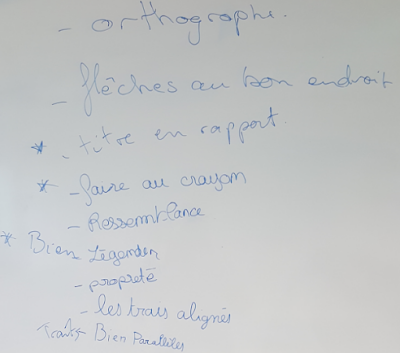 - orthographe.
- flêches au bon endroit
* - titre en rapport.
* - faire au crayon
- Ressemblance
* Bien Légender
- propreté
- les trais alignés
Traits Bien Paralleles